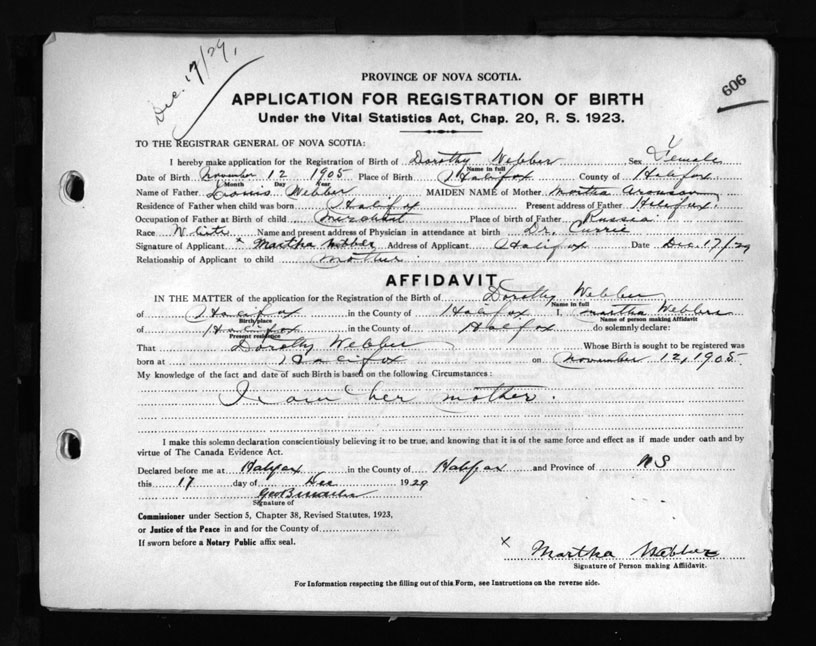 Dec. 17/29.
606
PROVINCE OF NOVA SCOTIA.
APPLICATION FOR REGISTRATION OF BIRTH
Under the Vital Statistics Act, Chap. 20, R. S. 1923.
TO THE REGISTRAR GENERAL OF NOVA SCOTIA:
I hereby make application for the Registration of Birth of Dorothy Webber Sex Female
Name in full
Date of Birth November 12 1905 Place of Birth Halifax County of Halifax
Month Day Year
Name of Father Webber MAIDEN NAME of Mother Martha Aronson
Residence of Father when child was born Halifax Present address of Father Halifax
Occupation of Father at Birth of child Merchant Place of birth of Father Russia
Race White Name and present address of Physician in attendance at birth Dr. Currie
Signature of Applicant x Martha Webber Address of Applicant Halifax Date Dec. 17/29
Relationship of Applicant to child mother
AFFIDAVIT
IN THE MATTER of the application for the Registration of the Birth of Dorothy Webber
Name in full
of Halifax in the County of Halifax I, Martha Webber
Birthplace Name of person making Affidavit
of Halifax in the County of Halifax do solemnly declare:
Present residence
That Dorothy Webber Whose Birth is sought to be registered was
born at Halifax on November 12, 1905
My knowledge of the fact and date of such Birth is based on the following Circumstances:
I am her mother.
I make this solemn declaration conscientiously believing it to be true, and knowing that it is of the same force and effect as if made under oath and by
virtue of The Canada Evidence Act.
Declared before me at Halifax in the County of Halifax and Province of NS
this 17 day of Dec 1929
Signature of
Commissioner under Section 5, Chapter 38, Revised Statutes, 1923,
or Justice of the Peace in and for the County of
If sworn before a Notary Public affix seal.
x Martha Webber
Signature of Person making Affidavit.
For Information respecting the filling out of this Form, see Instructions on the reverse side.